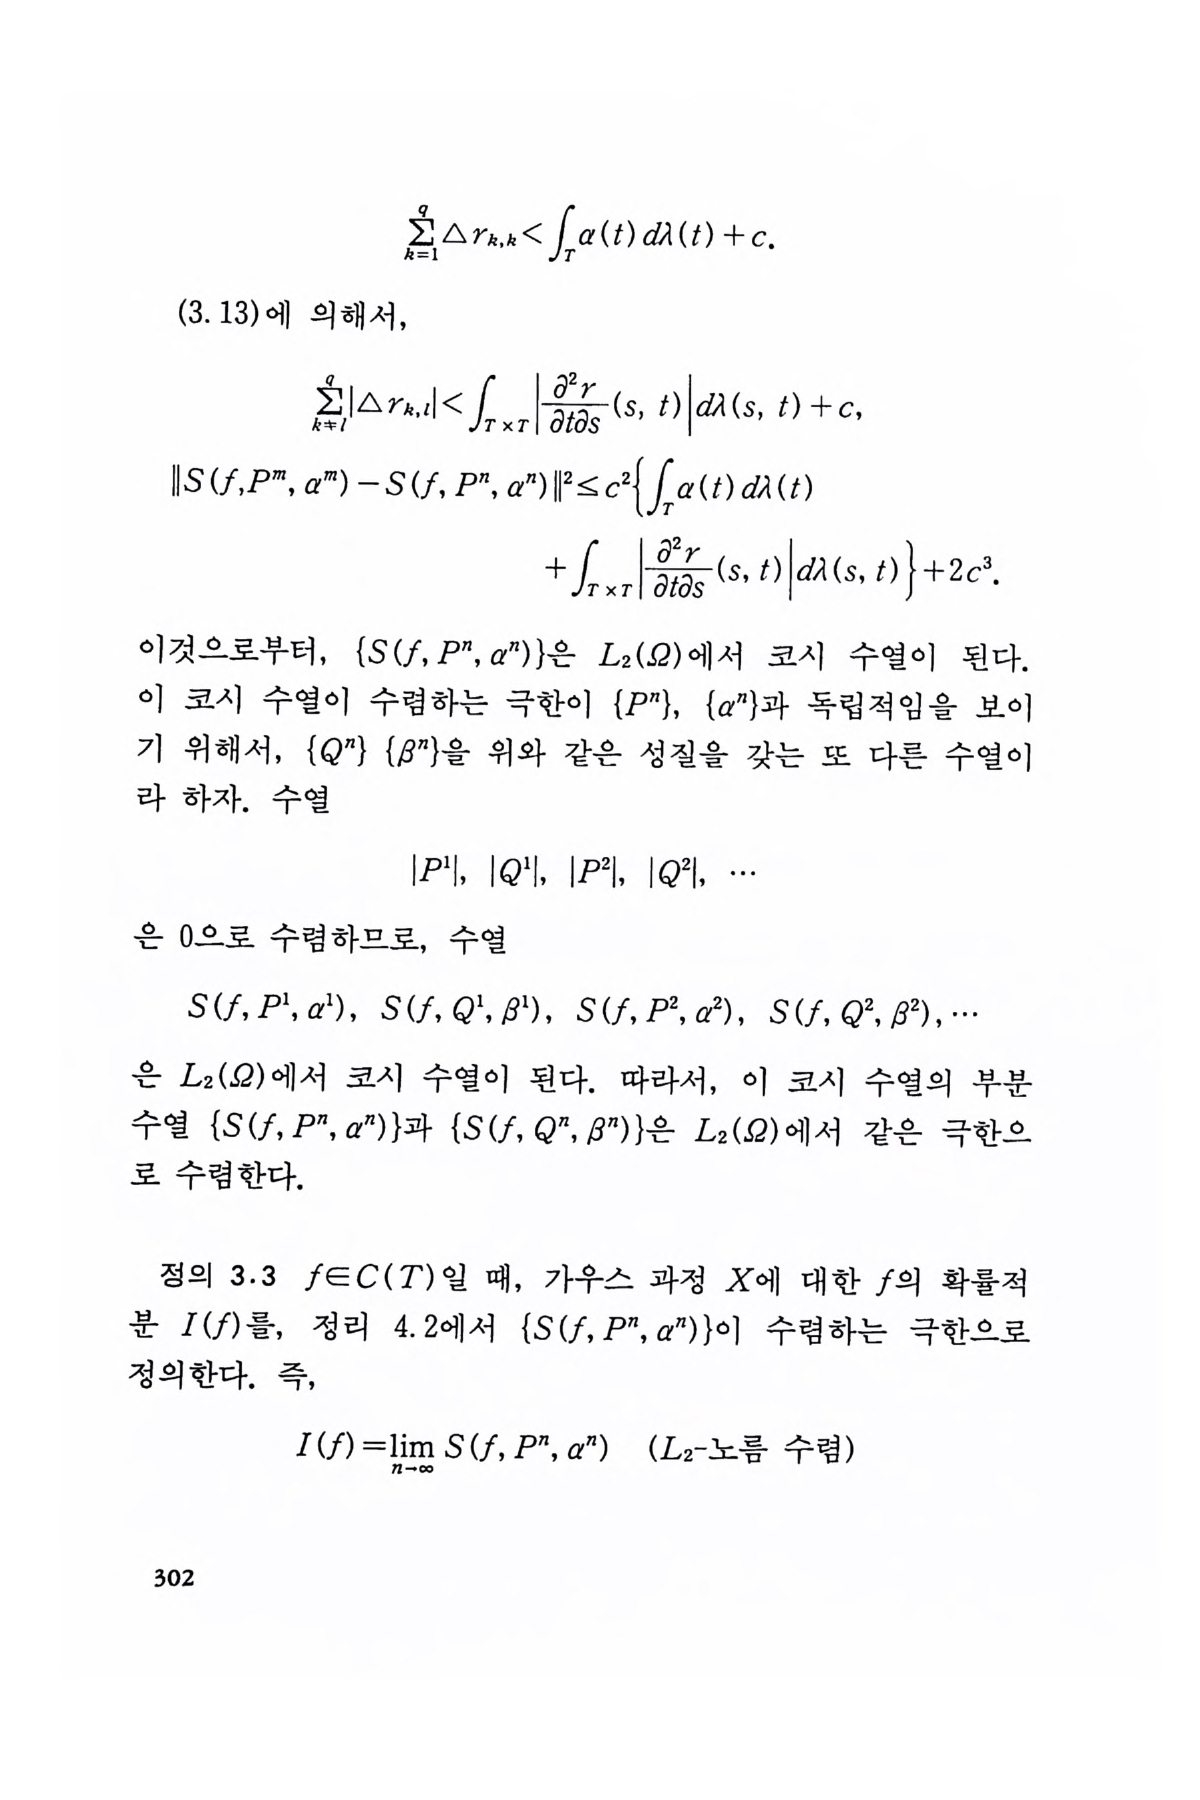 $$\sum_{k=1}^{q} \triangle r_{k,k} < \int_T \alpha(t)\, d\lambda(t) + c.$$
(3. 13)에 의해서,
$$\sum_{k \neq l}^{q} |\triangle r_{k,l}| < \int_{T \times T} \left| \frac{\partial^2 r}{\partial t \partial s}(s, t) \right| d\lambda(s, t) + c,$$
$$\|S(f, P^m, \alpha^m) - S(f, P^n, \alpha^n)\|^2 \leq c^2 \left\{ \int_T \alpha(t)\, d\lambda(t) \right.$$
$$\left. + \int_{T \times T} \left| \frac{\partial^2 r}{\partial t \partial s}(s, t) \right| d\lambda(s, t) \right\} + 2c^3.$$
이것으로부터, $\{S(f, P^n, \alpha^n)\}$은 $L_2(\Omega)$에서 코시 수열이 된다.
이 코시 수열이 수렴하는 극한이 $\{P^n\}$, $\{\alpha^n\}$과 독립적임을 보이
기 위해서, $\{Q^n\}$ $\{\beta^n\}$을 위와 같은 성질을 갖는 또 다른 수열이
라 하자. 수열
$$|P^1|, \ |Q^1|, \ |P^2|, \ |Q^2|, \ \cdots$$
은 0으로 수렴하므로, 수열
$$S(f, P^1, \alpha^1), \ S(f, Q^1, \beta^1), \ S(f, P^2, \alpha^2), \ S(f, Q^2, \beta^2), \cdots$$
은 $L_2(\Omega)$에서 코시 수열이 된다. 따라서, 이 코시 수열의 부분
수열 $\{S(f, P^n, \alpha^n)\}$과 $\{S(f, Q^n, \beta^n)\}$은 $L_2(\Omega)$에서 같은 극한으
로 수렴한다.
정의 3.3 $f \in C(T)$일 때, 가우스 과정 $X$에 대한 $f$의 확률적
분 $I(f)$를, 정리 4. 2에서 $\{S(f, P^n, \alpha^n)\}$이 수렴하는 극한으로
정의한다. 즉,
$$I(f) = \lim_{n \to \infty} S(f, P^n, \alpha^n) \quad (L_2\text{-노름 수렴})$$
302